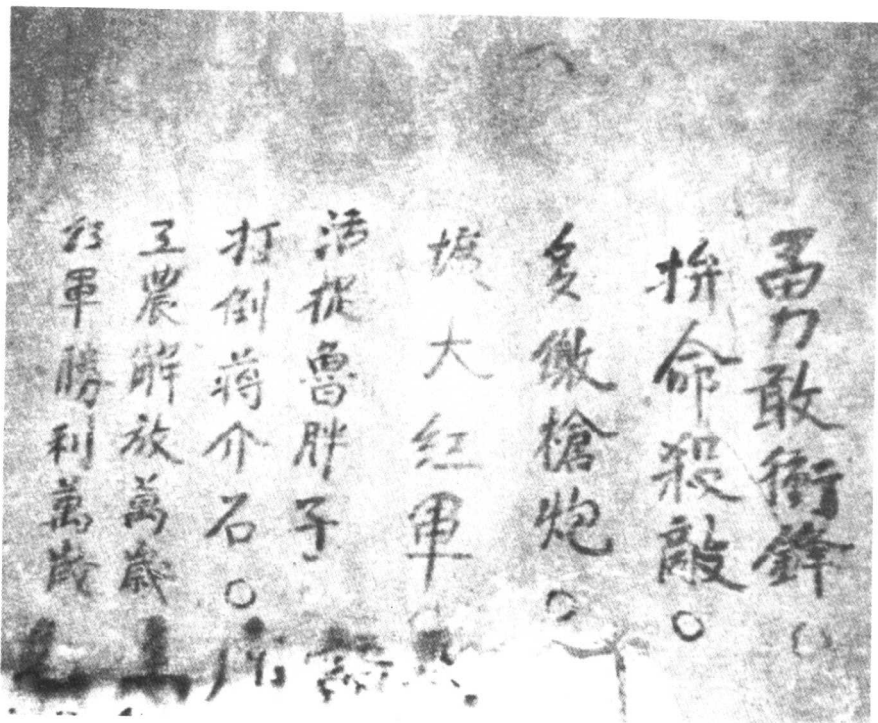 勇敢衝鋒。
拚命殺敵。
多繳槍炮。
擴大紅軍。
活捉魯胖子
打倒蔣介石。
工農解放萬歲
紅軍勝利萬歲